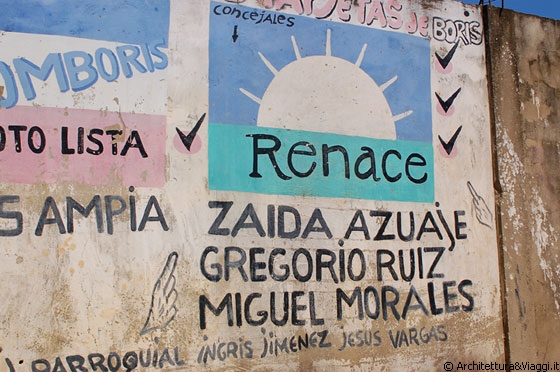 CONCEJALES
TARJETAS de BORIS
OMBORIS
OTO LISTA
Renace
S AMPIA
ZAIDA AZUAJE
GREGORIO RUIZ
MIGUEL MORALES
PARROQUIAL INGRIS JIMENEZ JESUS VARGAS
© Architettura&Viaggi.it